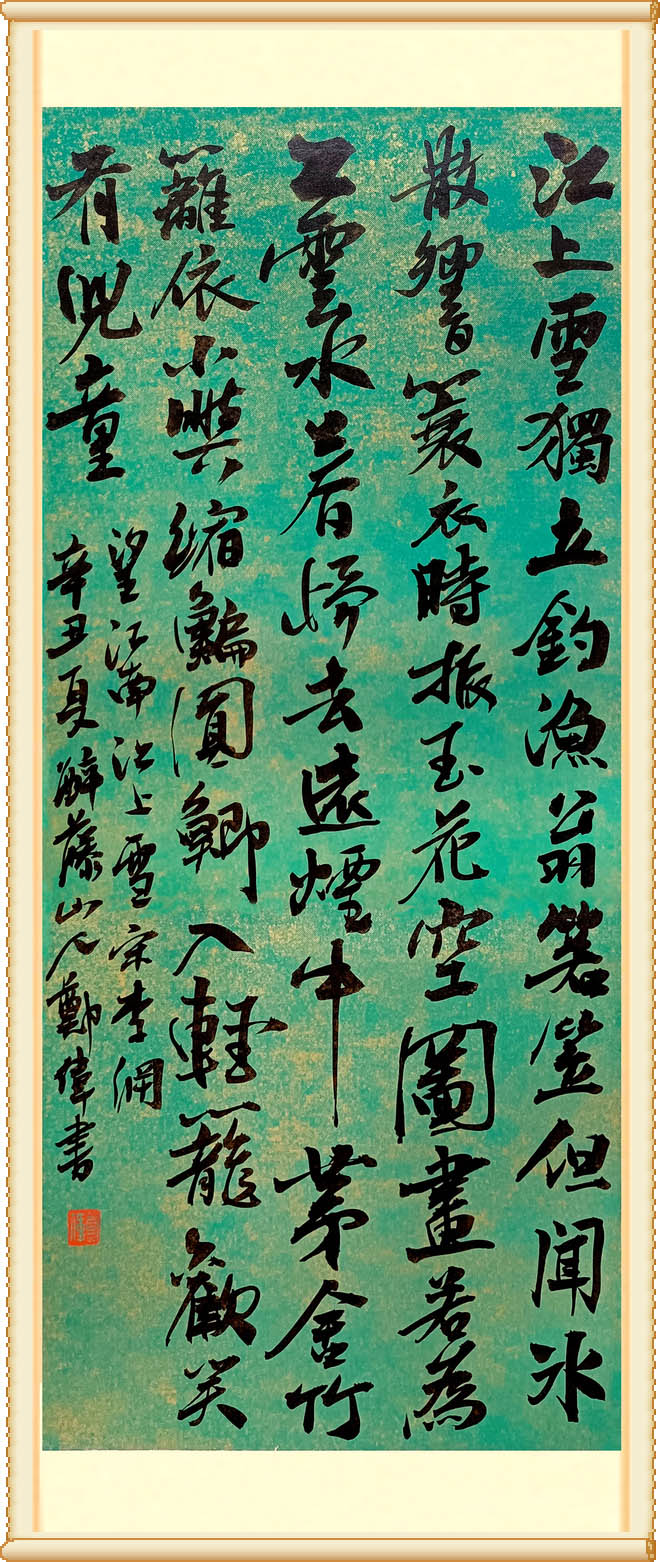 江上雪獨立釣漁翁箬笠但聞冰
散響簑衣時振玉花空圖畫若為
工雲水暮歸去遠煙中茅舍竹
籬依小嶼縮鯿圓鯽入輕籠歡笑
有兒童
望江南江上雪宋李綱
辛丑夏藤山人鄭偉書